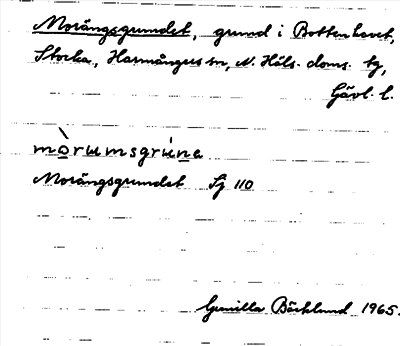 Morängsgrundet, grund i Bottenhavet,
Stocka, Harmångers sn, N. Häls. doms. tg,
Gävl. l.
mòrumsgrúne
Morängsgrundet Sj 110
Gunilla Bäcklund 1965.